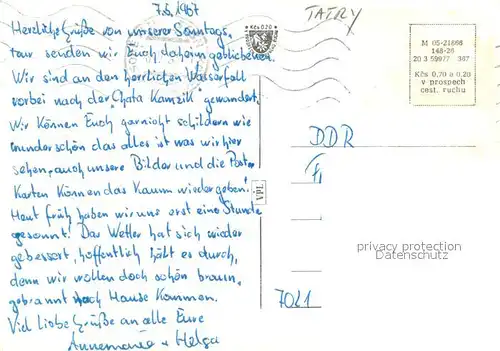 7.6. 1967
TATRY
Herzliche Grüße von unserer Sonntags-
tour senden wir Euch daheim gebliebenen
Wir sind an den herrlichen Wasserfall
vorbei nach der Chata Kamzik gewandert.
Wir können Euch garnicht schildern wie
wunderschön das alles ist was wir hier
sehen, auch unsere Bilder und die Post-
Karten können das kaum wiedergeben!
Heut früh haben wir uns erst eine Stunde
gesonnt! Das Wetter hat sich wieder
gebessert, hoffentlich hält es durch,
denn wir wollen doch schön braun,
gebrannt nach Hause kommen.
Viel Liebe Grüße an alle Eure
Annemarie + Helga
Kčs 0.20
M 05-21668
148-26
20 3 59977 367
Kčs 0,70 a 0,20
v prospech
cest. ruchu
DDR
VPL
7021
privacy protection
Datenschutz